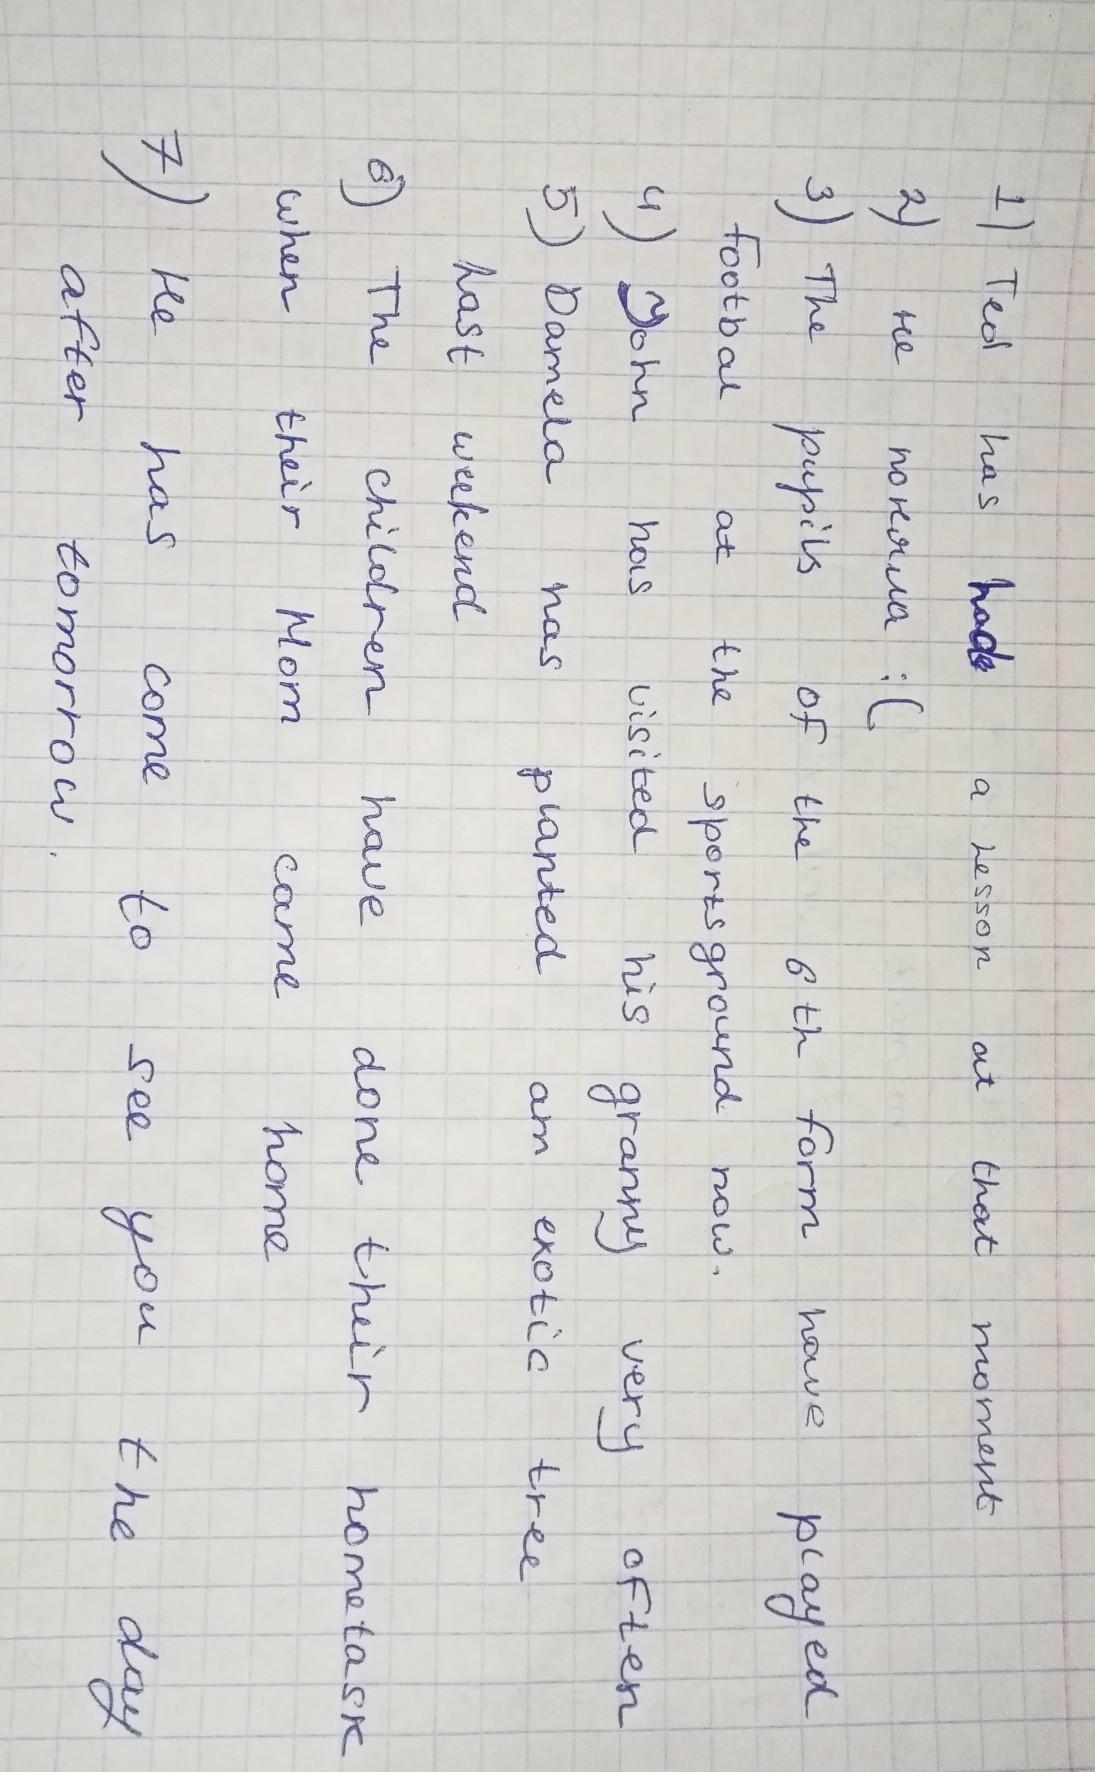 1) Ted has had a lesson at that moment
2) не поняла :(
3) The pupils of the 6th form have played
footbal at the sportsground now.
4) John has visited his granny very often
5) Damela has planted am exotic tree
last weekend
6) The children have done their hometask
when their Mom came home
7) He has come to see you the day
after tomorrow.